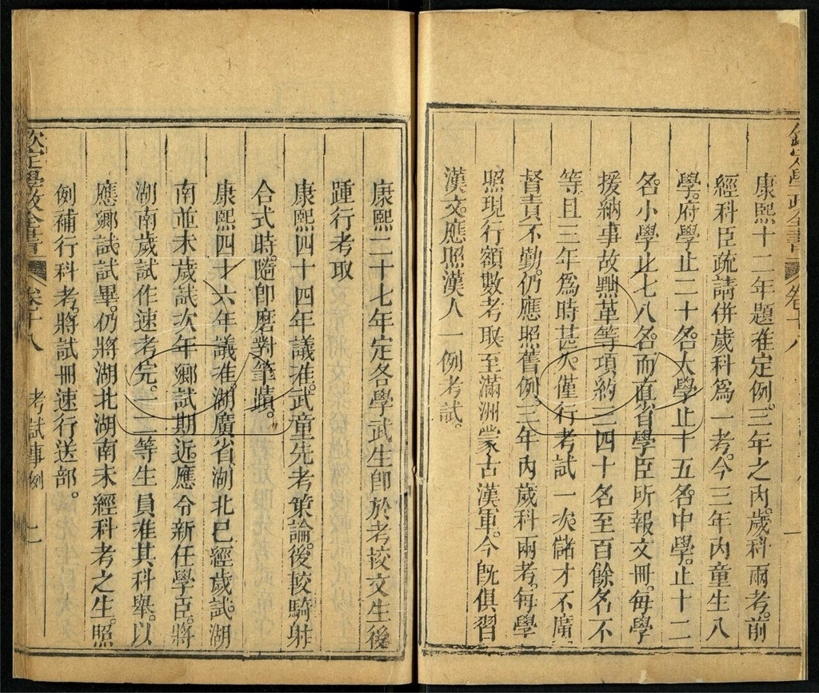 康熙十二年題准定例三年之內歲科兩考前
經科臣疏請併歲科爲一考今三年內童生入
學府學止二十名大學止十五名中學止十二
名小學止七八名而直省學臣所報文冊每學
援納事故黜革等項約三四十名至百餘名不
等且三年爲時甚久僅行考試一次儲才不廣
督責不勤仍應照舊例三年內歲科兩考每學
照現行額數考取至滿洲蒙古漢軍今旣俱習
漢文應照漢人一例考試
欽定學政全書 卷十八 考試事例 二
康熙二十七年定各學武生卽於考校文生後
踵行考取
康熙四十四年議准武童先考策論後較騎射
合式時隨卽磨對筆蹟
康熙四十六年議准湖廣省湖北已經歲試湖
南並未歲試次年鄉試期近應令新任學臣將
湖南歲試作速考完一二等生員准其科舉以
應鄉試試畢仍將湖北湖南未經科考之生照
例補行科考將試冊速行送部